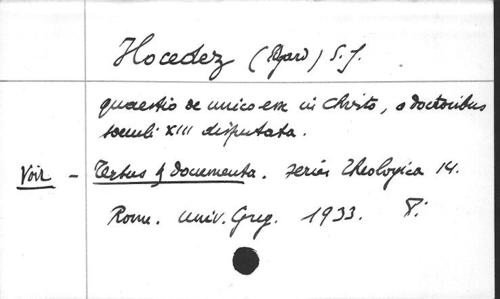 Hocedez (Edgard) S.J.
quaestio de unico esse in Christo, a doctoribus
saeculi XIII disputata.
Voir - Textus & documenta. series theologica 14.
Rome. Univ. Greg. 1933.